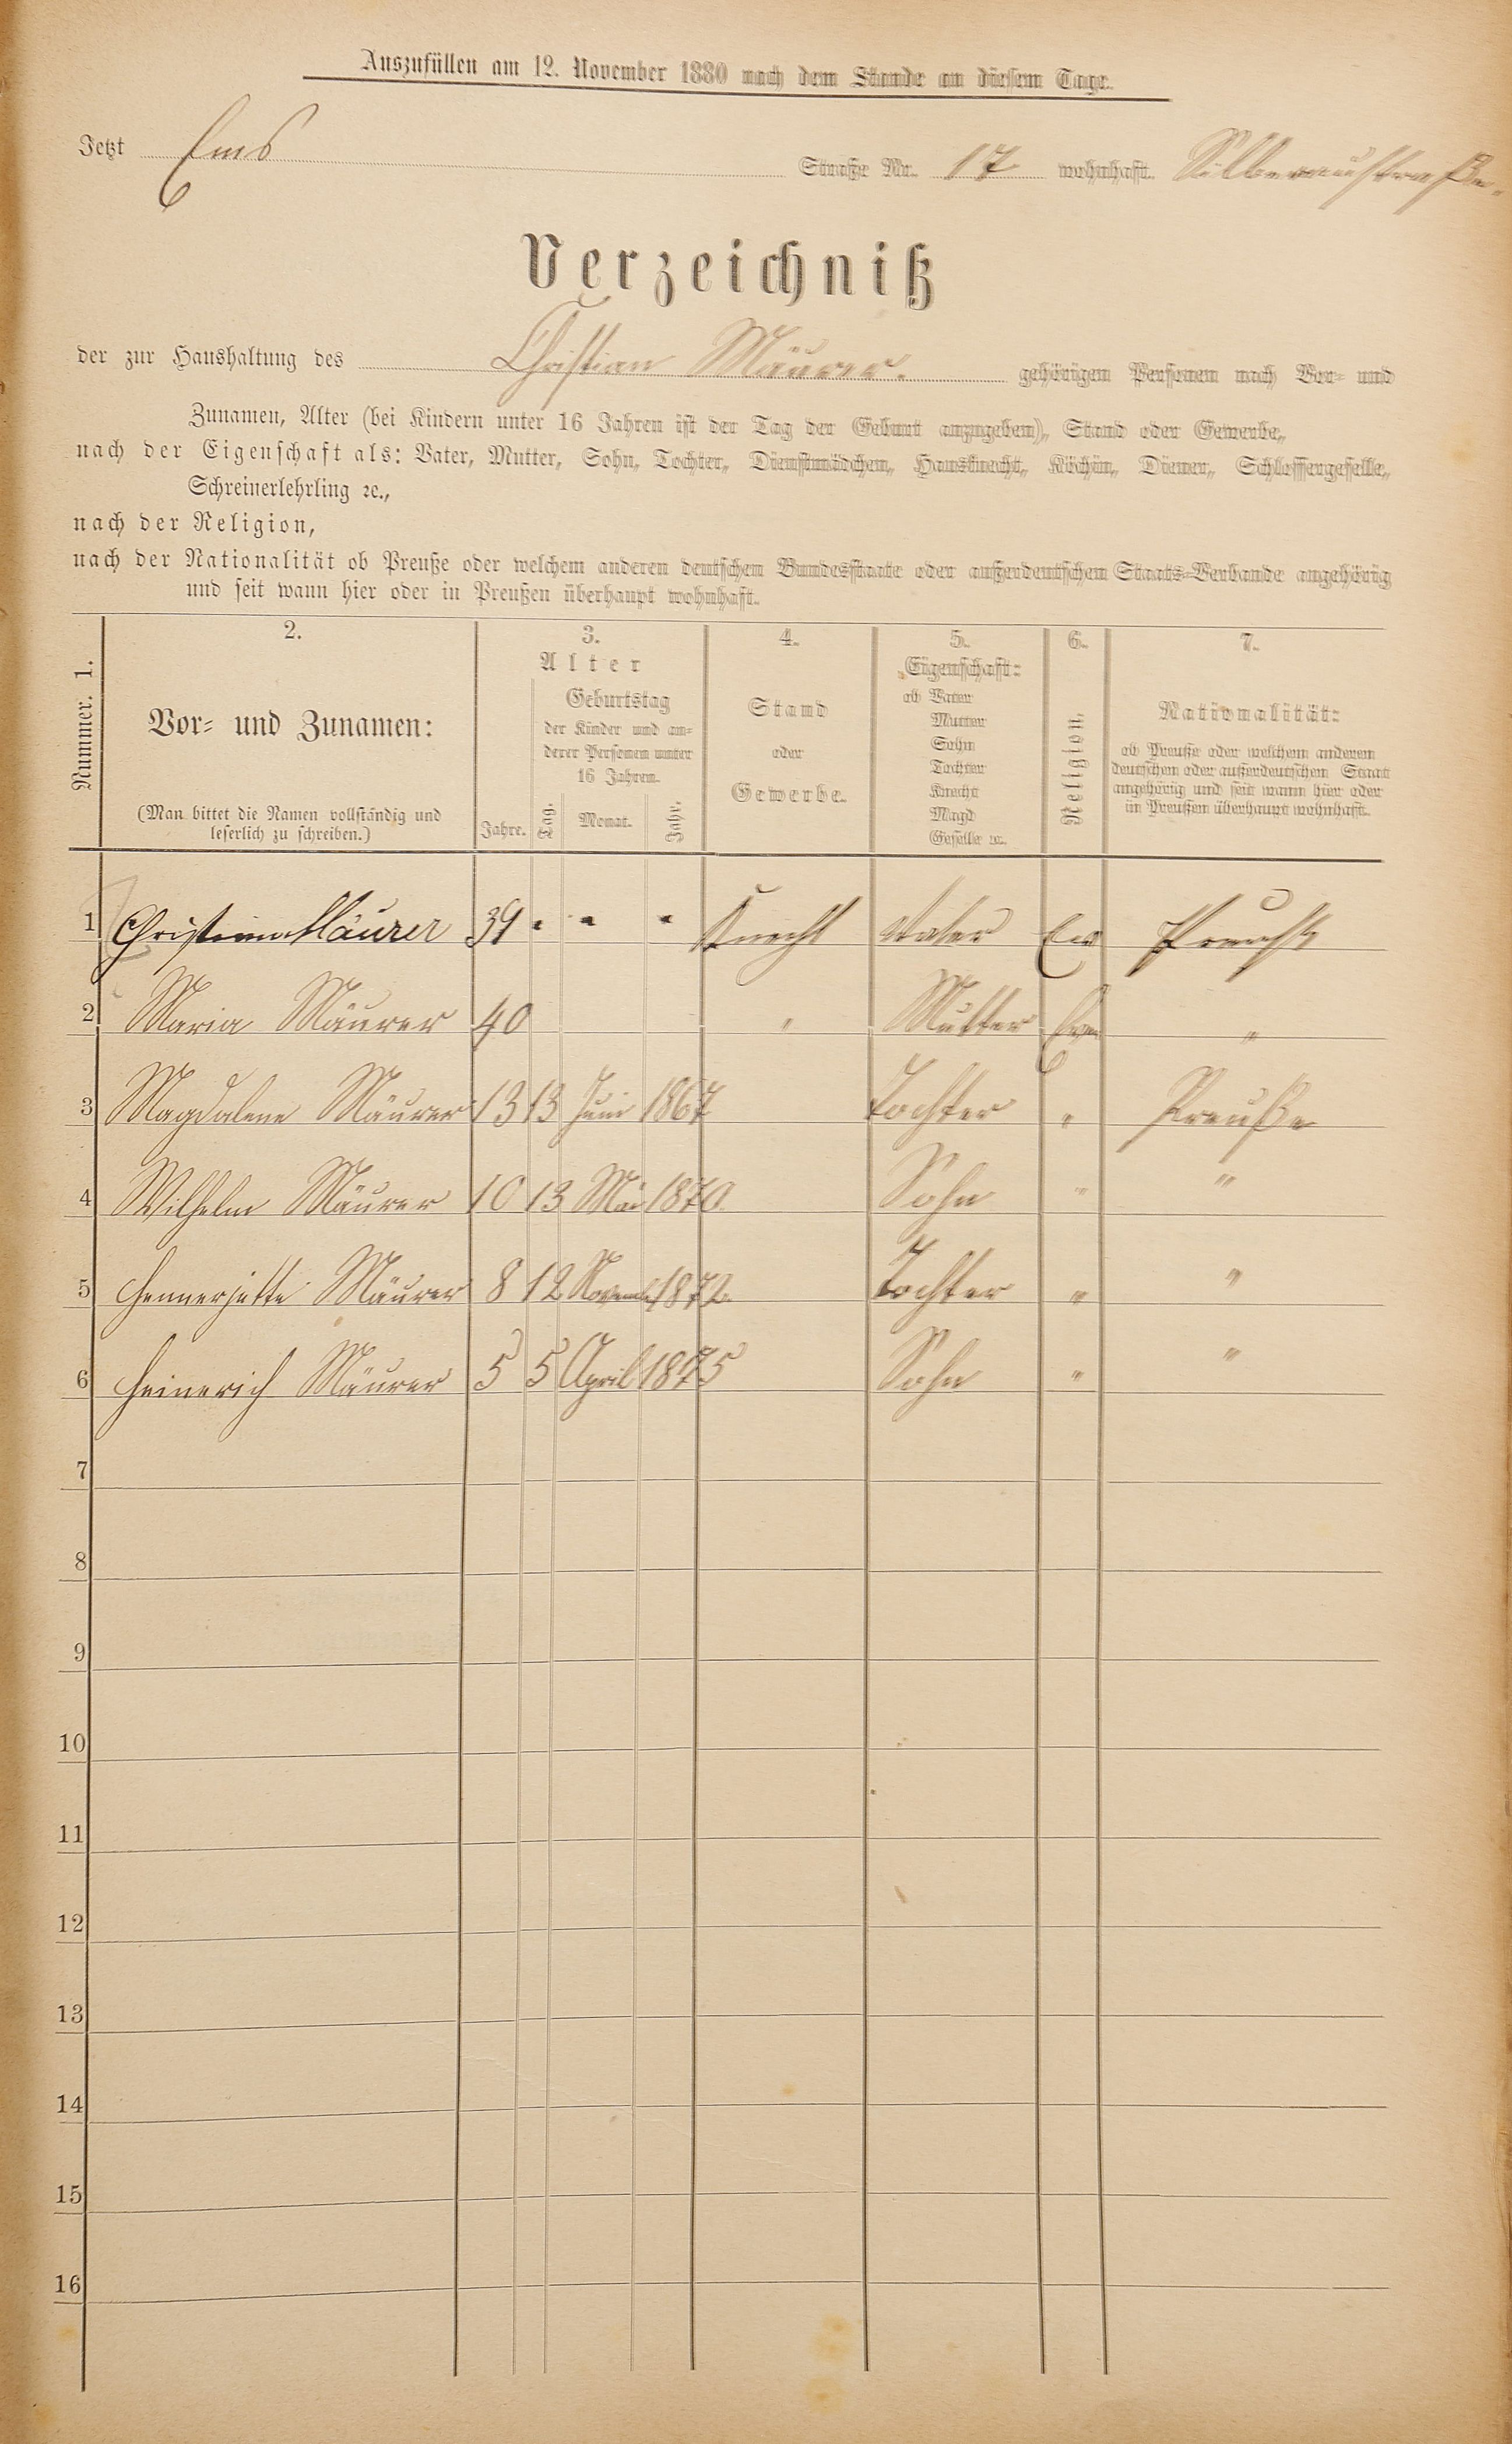 Auszufüllen am 12. November 1880 nach dem Stande an diesem Tage.
Jetzt Ems Straße Nr. 17 wohnhaft. Silberaustraße.
Verzeichniß
der zur Haushaltung des Christian Mäurer. gehörigen Personen nach Vor- und
Zunamen, Alter (bei Kindern unter 16 Jahren ist der Tag der Geburt anzugeben), Stand oder Gewerbe,
nach der Eigenschaft als: Vater, Mutter, Sohn, Tochter, Dienstmädchen, Hausknecht, Köchin, Diener, Schlossergeselle,
Schreinerlehrling ꝛc.,
nach der Religion,
nach der Nationalität ob Preuße oder welchem anderen deutschen Bundesstaate oder außerdeutschem Staats-Verbande angehörig
und seit wann hier oder in Preußen überhaupt wohnhaft.
Nummer. 1.
2.
Vor- und Zunamen:
(Man bittet die Namen vollständig und
leserlich zu schreiben.)
3.
Alter
Jahre.
Geburtstag
der Kinder und an-
derer Personen unter
16 Jahren.
Tag. Monat. Jahr.
4.
Stand
oder
Gewerbe.
5.
Eigenschaft:
ob Vater
Mutter
Sohn
Tochter
Knecht
Magd
Geselle ꝛc.
6.
Religion.
7.
Nationalität:
ob Preuße oder welchem anderem
deutschen oder außerdeutschem Staat
angehörig und seit wann hier oder
in Preußen überhaupt wohnhaft.
1 Mäurer 39 " " " Knecht Vater Ev Preuße
2 Maria Mäurer 40 " Mutter Ev "
3 Magdalene Mäurer 13 13 Juni 1867 Tochter " Preuße
4 Wilhelm Mäurer 10 13 Mai 1870. Sohn " "
5 Hennerjette Mäurer 8 12 Novemb 1872. Tochter " "
6 Heinerich Mäurer 5 5 April 1875 Sohn " "
7
8
9
10
11
12
13
14
15
16